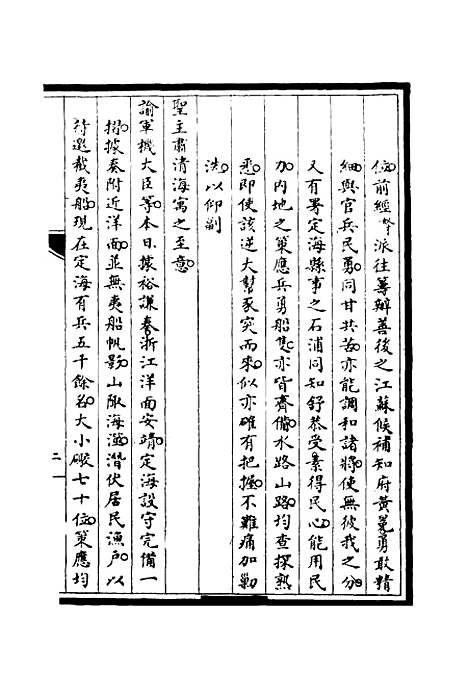 位前經𢌿派往籌辦善後之江蘇候補知府黃冕勇敢精
細與官兵民勇同甘共苦亦能調和諸將使無彼我之分
又有署定海縣事之石浦同知舒恭受素得民心能用民
力加內地之策應兵勇船隻亦皆齊備水路山路均查探熟
悉即使該逆大幫豕突而來似亦確有把握不難痛加勦
洗以仰副
聖主肅清海寓之至意
諭軍機大臣等本日據裕謙奏浙江洋面安靖定海設守完備一
摺據奏附近洋面並無夷船帆影山陬海澨潛伏居民漁戶以
待邀截夷船現在定海有兵五千餘名大小礮七十位策應均
二